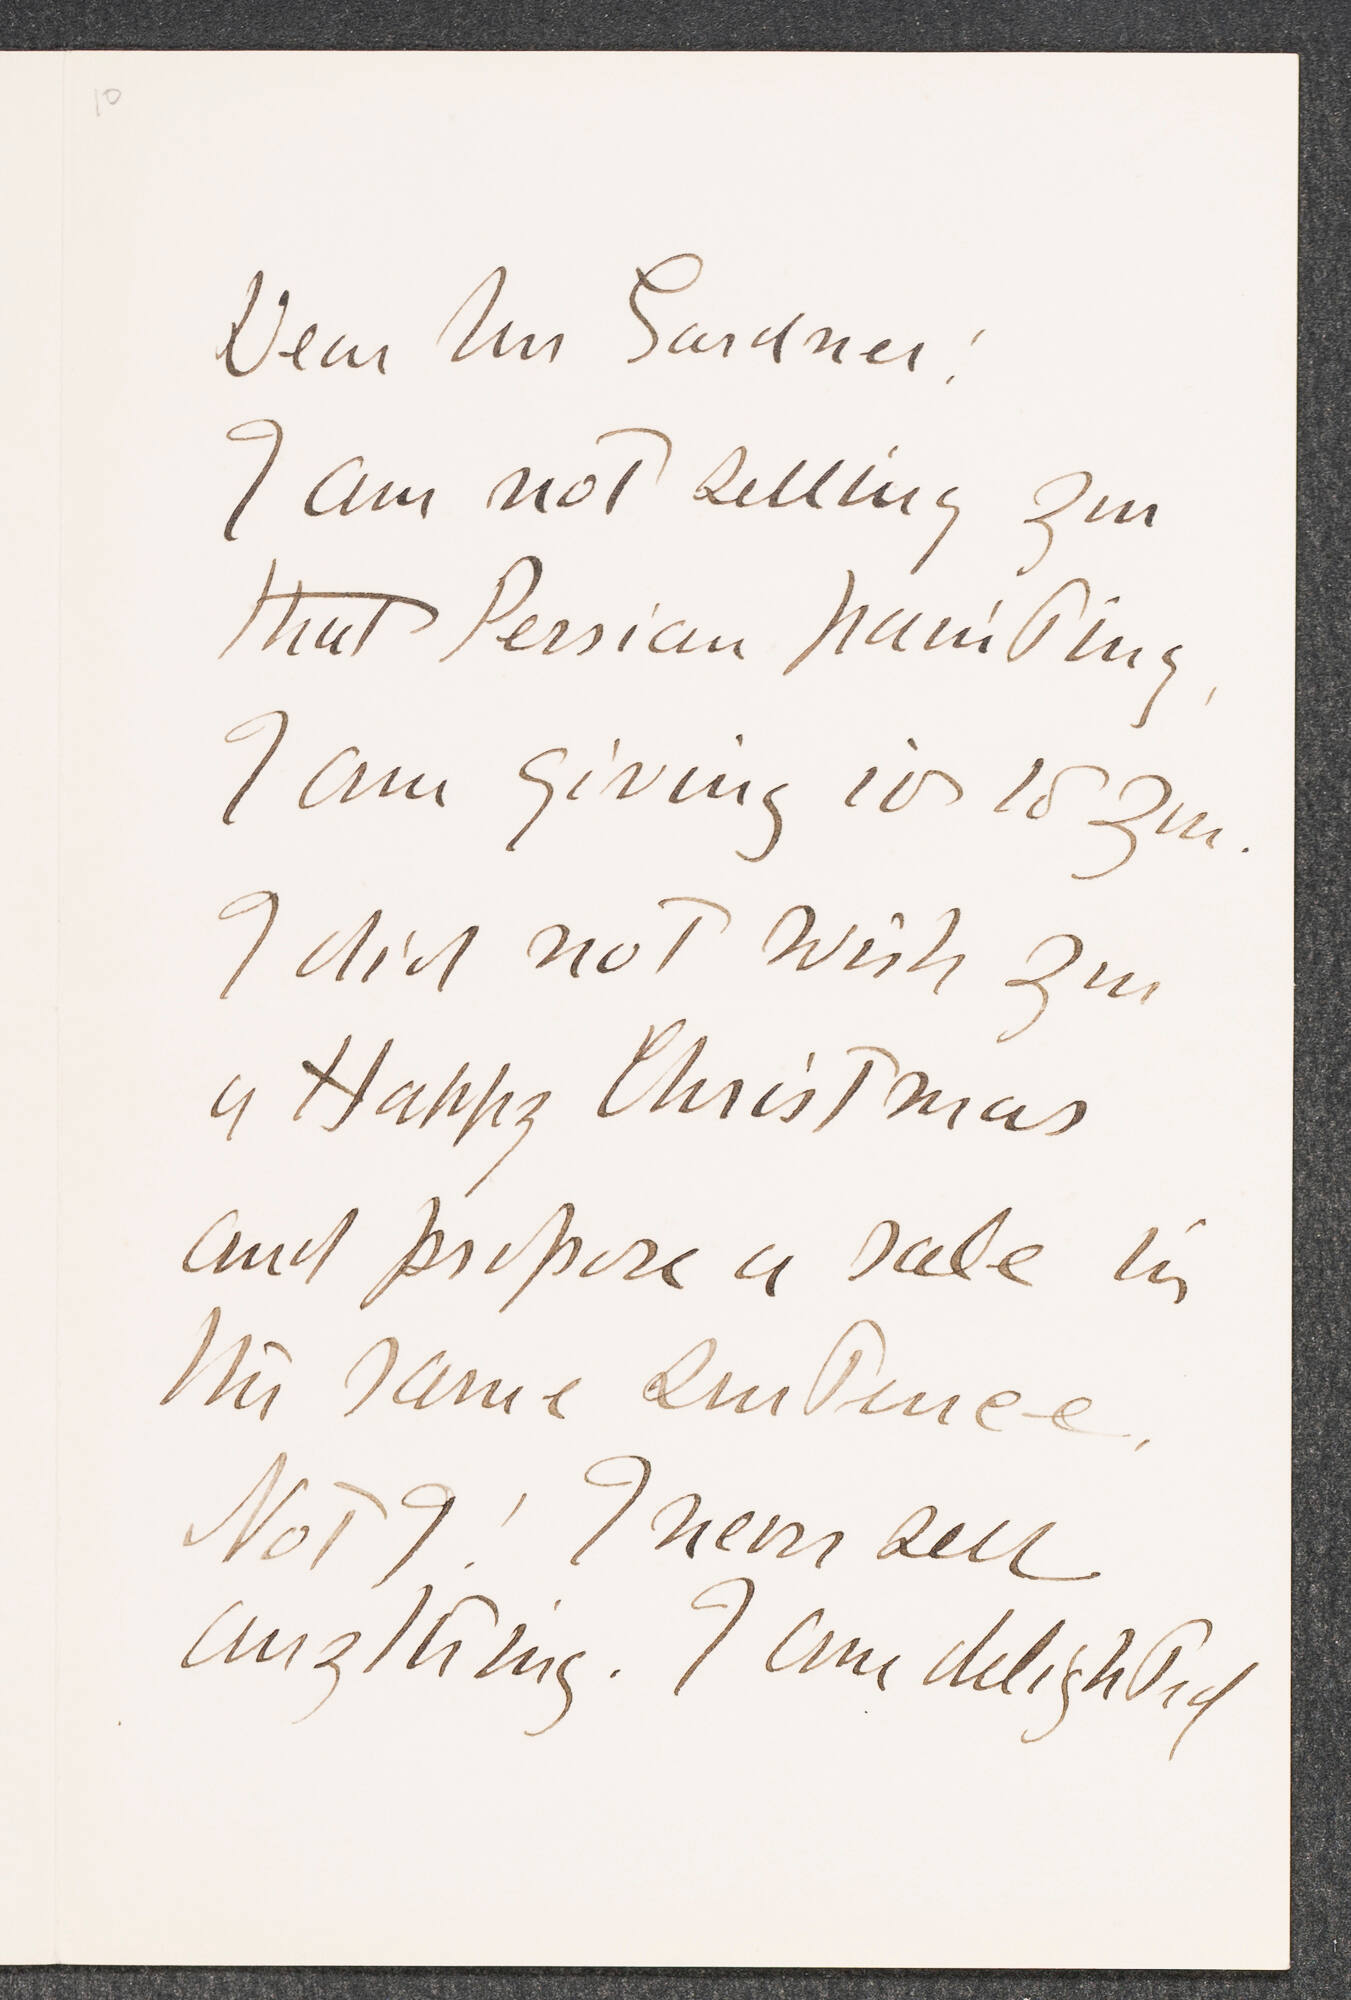 10
Dear Mrs Gardner!
I am not selling you
that Persian painting,
I am giving it to you.
I did not wish you
a Happy Christmas
and propose a sale in
the same sentence.
Not I! I never sell
anything. I am delighted